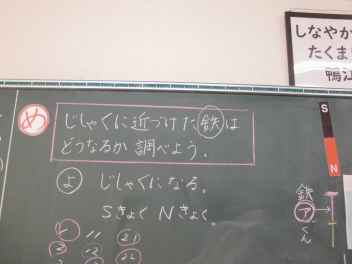 しなやか
たくま
鴨江
め
じしゃくに近づけた鉄は
どうなるか調べよう。
よ じしゃくになる。
Sきょく Nきょく。
S
N
鉄
ア
くん
11 21
22